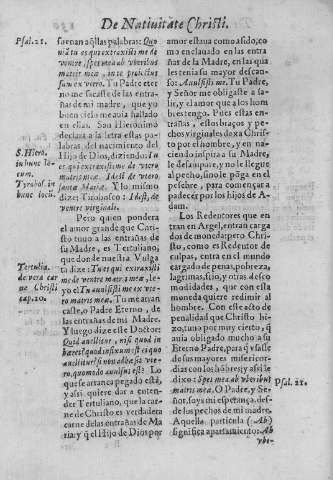 De Natiuitate Christi.
Psal. 21.
suenan aq̃llas palabras: Quo
niã tu es qui extraxisti me de
ventre, spes mea ab vberibus
matris meæ, in te proiectus
sum ex vtero. Tu Padre eter
no me sacaste de las entrañas
de mi madre, que yo
buen cielo me auia hallado
en ellas. San Hieronimo
declara a la letra estas pa
labras del nacimiento del
Hijo de Dios, diziendo: Tu
es qui extraxisti me de vtero
matris meæ. Id est de vtero
sanctæ Mariæ. Y lo mismo
dize: Id est, de
ventre virginali.
S. Hiero.
in hunc lo
cum.
in hunc locũ.
Pero quien pondera
el amor grande que Cari
sto tuuo a las entrañas de
su Madre, es Tertuliano,
que donde nuestra Vulga
ta dize: Tu es qui extraxisti
me de ventre matris meæ, le
yo el: Tu auulsisti me ex ve-
tro matris meæ. Tu me arran
caste, o Padre Eterno, de
las entrañas de mi Madre.
Y luego dize este Doctor:
Quid auellitur, nisi quod in
hæret quod infixum est ei a quo
auellitur? si non adhæsit vte-
ro, quomodo auulsus est? Lo
que se arranca pegado està,
y assi quiere dar a enten-
der Tertuliano, que la car
ne de Christo es verdadera
carne de las entrañas de Ma
ria: y q̃ el Hijo de Dios por
Tertulia.
de vera car
ne Christi
cap. 20.
amor estaua como asido, co
mo enclauado en las entra
ñas de la Madre, en las qua
les tenia su mayor descan-
so: Auulsisti me. Tu Padre,
y Señor me obligaste a sa-
lir, y el amor que a los hom
bres tengo. Pues estas en-
trañas, estos braços y pe-
chos virginales dexa Chris-
to por el hombre, y en na-
ciendo aspira a su Madre,
le desampare, y no le llegue
al pecho, sino le põga en el
pesebre, para començar a
padecer por los hijos de A-
dam.
Los Redentores que en-
tran en Argel, entran carga
dos de monedas: pero Chri-
sto, como es Redentor de
culpas, entra en el mundo
cargado de penas, pobreza,
lagrimas, frio, y otras desco
modidades, que con esta
moneda quiere redimir al
hombre. Con este acto de
penalidad que Christo hi-
zo, tuuo por muy cierto, q̃
auia obligado mucho a su
Eterno Padre, para q̃ vsasse
de sus mayores misericor-
dias con los hõbres; y assi le
dixo: Spes mea ab vberibus
matris meæ. O Padre, y Se
ñor, soys mi esperança, des-
de los pechos de mi madre.
Aquella particula (Ab)
significa apartamiento: Ab
Psal. 21.
vbe-